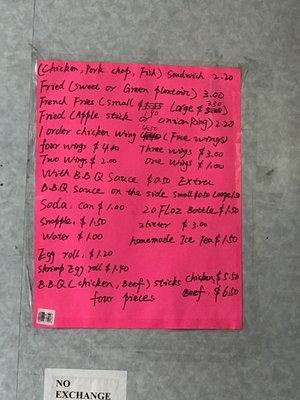 (Chicken, Pork chop, Fish) Sandwich 2.20
Fried (Sweet or Green plantain) 3.00
French Fries (Small Large $
Fried (Apple stick or onion Ring) 2.20
1 order chicken wing 4.50 (Five wings)
four wings $ 4.00 Three wings $ 3.00
Two Wings $ 2.00 one wings $ 1.00
With B.B.Q Sauce $0.50 Extra
B.B.Q Sauce on the side Small Large
Soda. Can $ 1.00 20 Floz Bottle $1.50
Snapple. $ 1.50 2 liter $ 3.00
Water $ 1.00 homemade Ice Tea $1.50
Egg roll. $ 1.20
Shrimp Egg roll $ 1.40
B.B.Q (chicken, Beef) sticks Chicken, $5.50
four pieces Beef. $6.50
NO
EXCHANGE